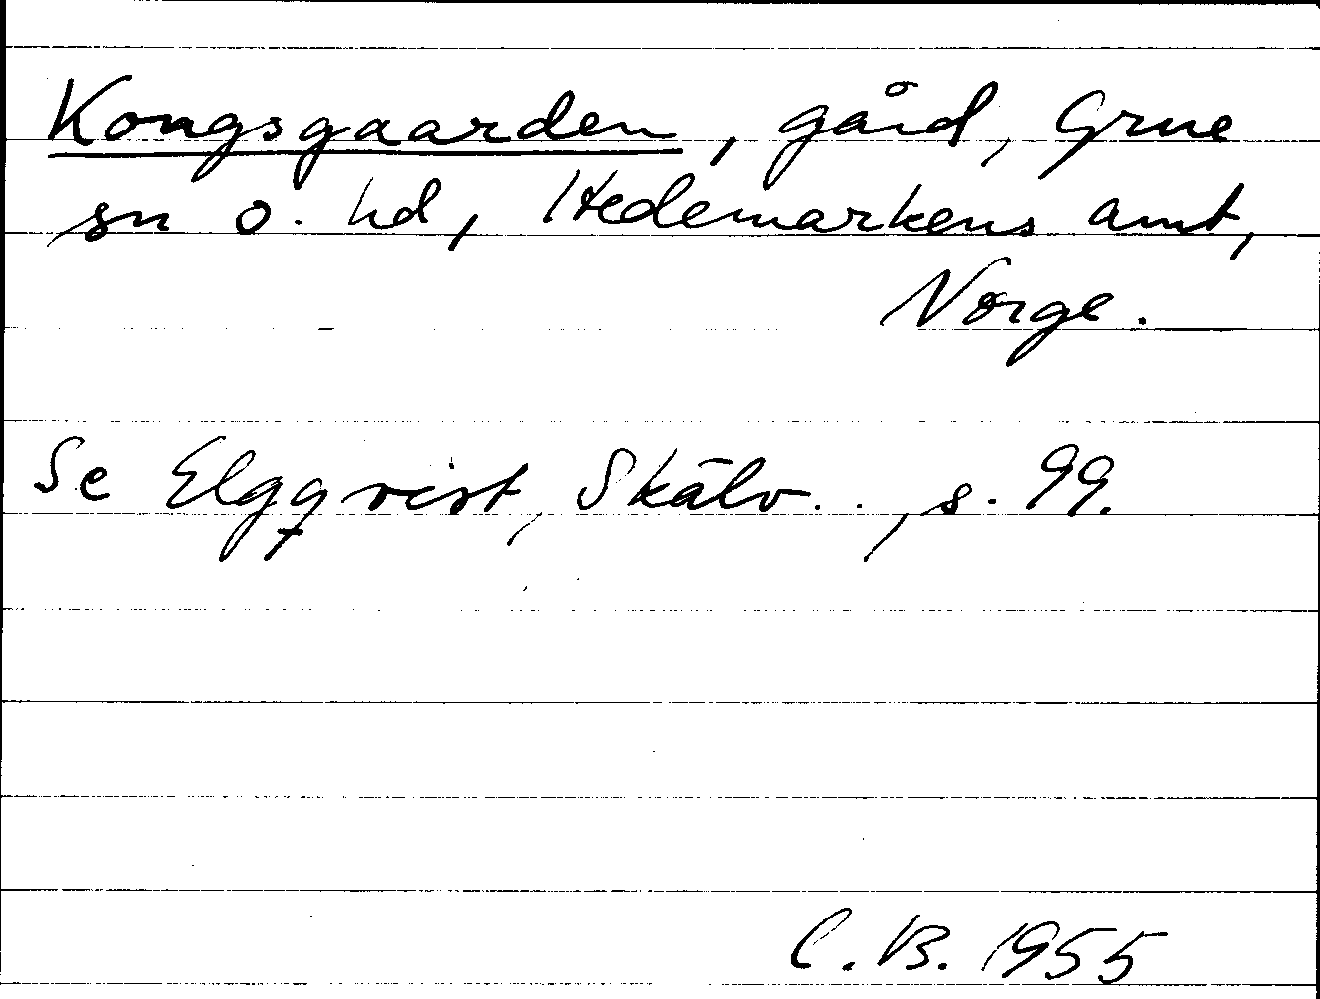 Kongsgaarden, gård, Grue
sn o. hd, Hedemarkens amt,
Norge.
Se Elgqvist, Skälv.., s. 99.
C.B. 1955